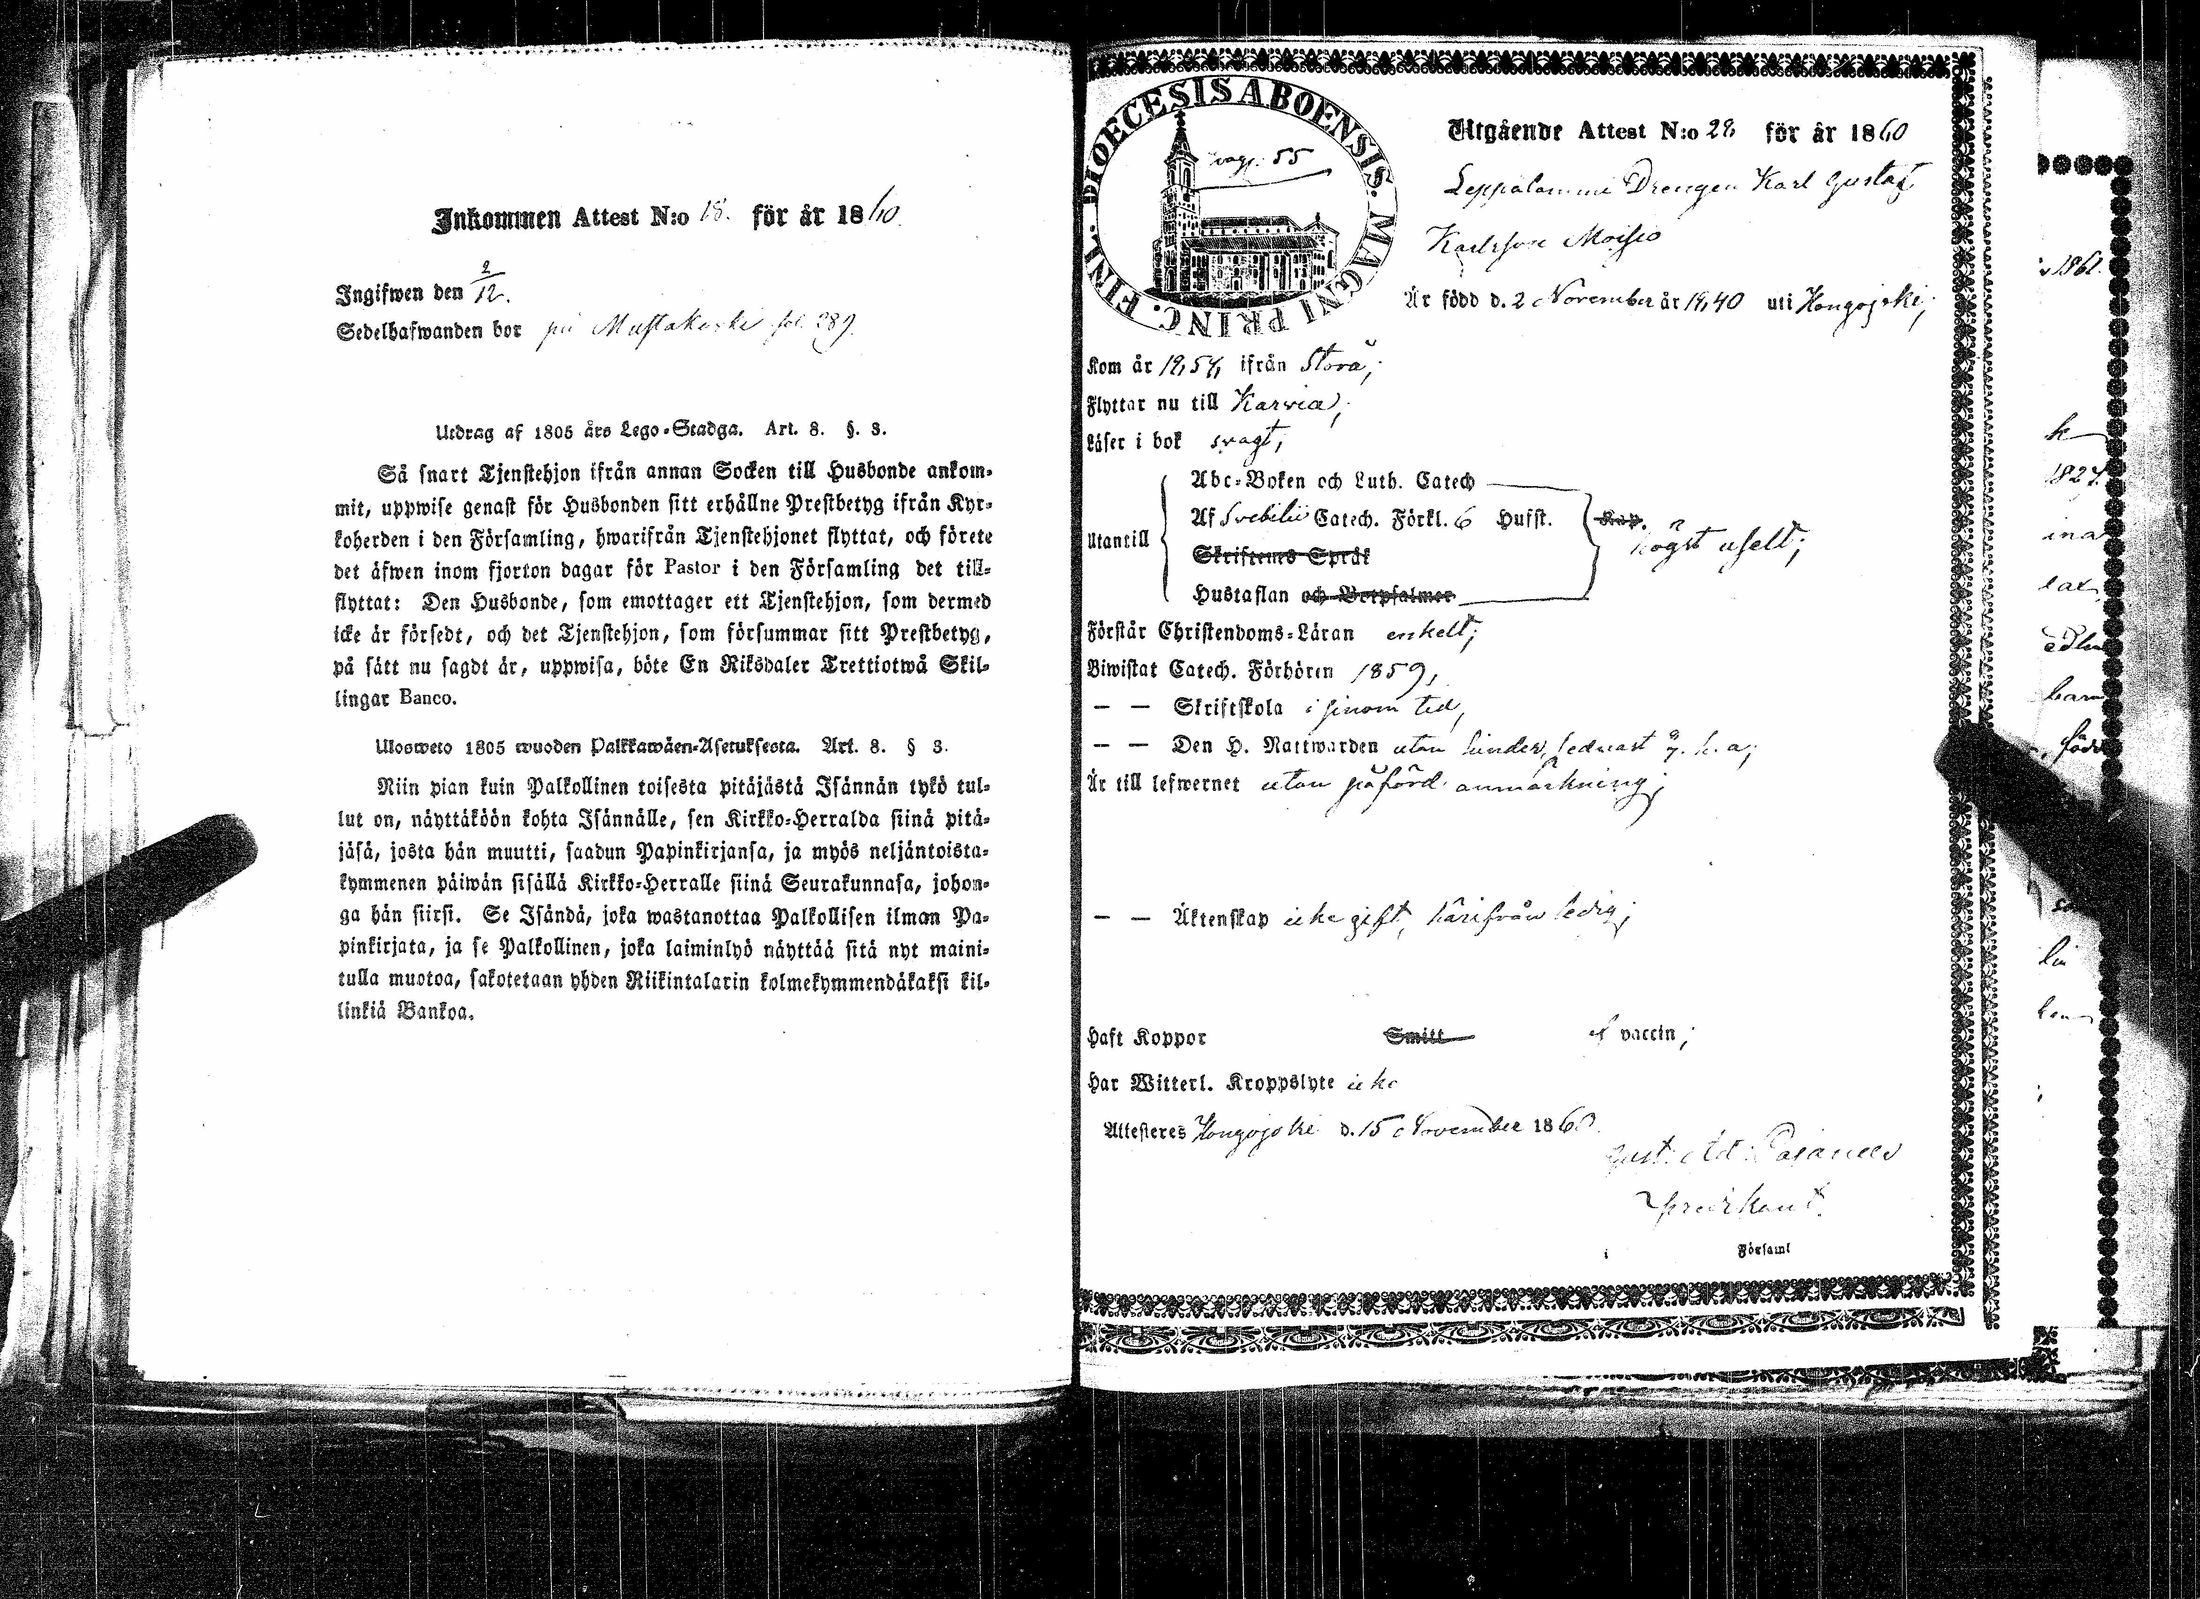 Inkommen Attest N:o 18. för år 1860.
Ingifwen den 2/12.
Sedelhafwanden bor på Mustakoski fol. 289.
Utdrag af 1805 års Lego-Stadga. Art. 8. §. 3.
Så snart Tjenstehjon ifrån annan Socken till Husbonde ankom-
mit, uppwise genast för Husbonden sitt erhållne Prestbetyg ifrån Kyr-
koherden i den Församling, hwarifrån Tjenstehjonet flyttat, och förete
det äfwen inom fjorton dagar för Pastor i den Församling det till-
flyttat: Den Husbonde, som emottager ett Tjenstehjon, som dermed
icke är försedt, och det Tjenstehjon, som försummar sitt Prestbetyg,
på sätt nu sagdt är, uppwisa, böte En Riksdaler Trettiotwå Skil-
lingar Banco.
Ulosweto 1805 wuoden Palkkawäen-Asetuksesta. Art. 8. § 3.
Niin pian kuin Palkollinen toisesta pitäjästä Isännän tykö tul-
lut on, näyttäköön kohta Isännälle, sen Kirkko-Herralda siinä pitä-
jäsä, josta hän muutti, saadun Papinkirjansa, ja myös neljäntoista-
kymmenen päiwän sisällä Kirkko-Herralle siinä Seurakunnasa, johon-
ga hän siirsi. Se Isändä, joka wastanottaa Palkollisen ilman Pa-
pinkirjata, ja se Palkollinen, joka laiminlyö näyttää sitä nyt maini-
tulla muotoa, sakotetaan yhden Riikintalarin kolmekymmendäkaksi kil-
linkiä Bankoa.
DIOECESIS ABOENSIS. MAGNI PRINC. FINL.
pag. 55
Utgående Attest N:o 28 för år 1860
Leppälammi Drengen Karl Gustaf
Karlsson Moisio
Är född d. 2 November år 1840 uti Hongojoki;
Kom år 1854, ifrån Storå;
Flyttar nu till Karvia;
Läser i bok svagt;
Utantill
Abc-Boken och Luth. Catech
Af Svebilii Catech. Förkl. 6 Hufst. Kap.
Skriftenes Språk
Hustaflan och Botpsalmer
högst uselt;
Förstår Christendoms-Läran enkelt;
Biwistat Catech. Förhören 1859,
— — Skriftskola i sinom tid,
— — Den H. Nattwarden utan hinder,
Är till lefwernet utan påförd anmärkning;
— — Äktenskap icke gift, härifrån ledig;
Haft Koppor Smitt af vaccin;
Har Witterl. Kroppslyte icke
Attesteres Hongojoki d. 15 November 1860.
Gust. Ad. Pajanen
predikant.
i Församl
1861.
k
1827.
ina
barn
född
lin